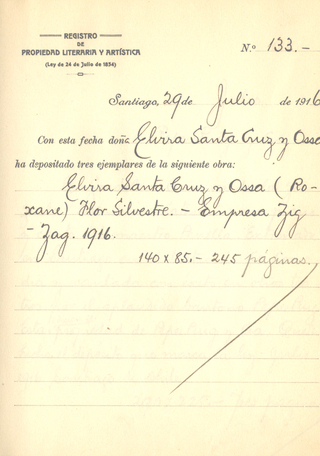 REGISTRO
DE
PROPIEDAD LITERARIA Y ARTÍSTICA
(Ley de 24 de Julio de 1834)
N.º 133.-
Santiago, 29 de Julio de 1916
Con esta fecha doña Elvira Santa Cruz y Ossa
ha depositado tres ejemplares de la siguiente obra:
Elvira Santa Cruz y Ossa (Ro-
xane) Flor Silvestre. - Empresa Zig
- Zag. 1916.
140 x 85.- 245 páginas.